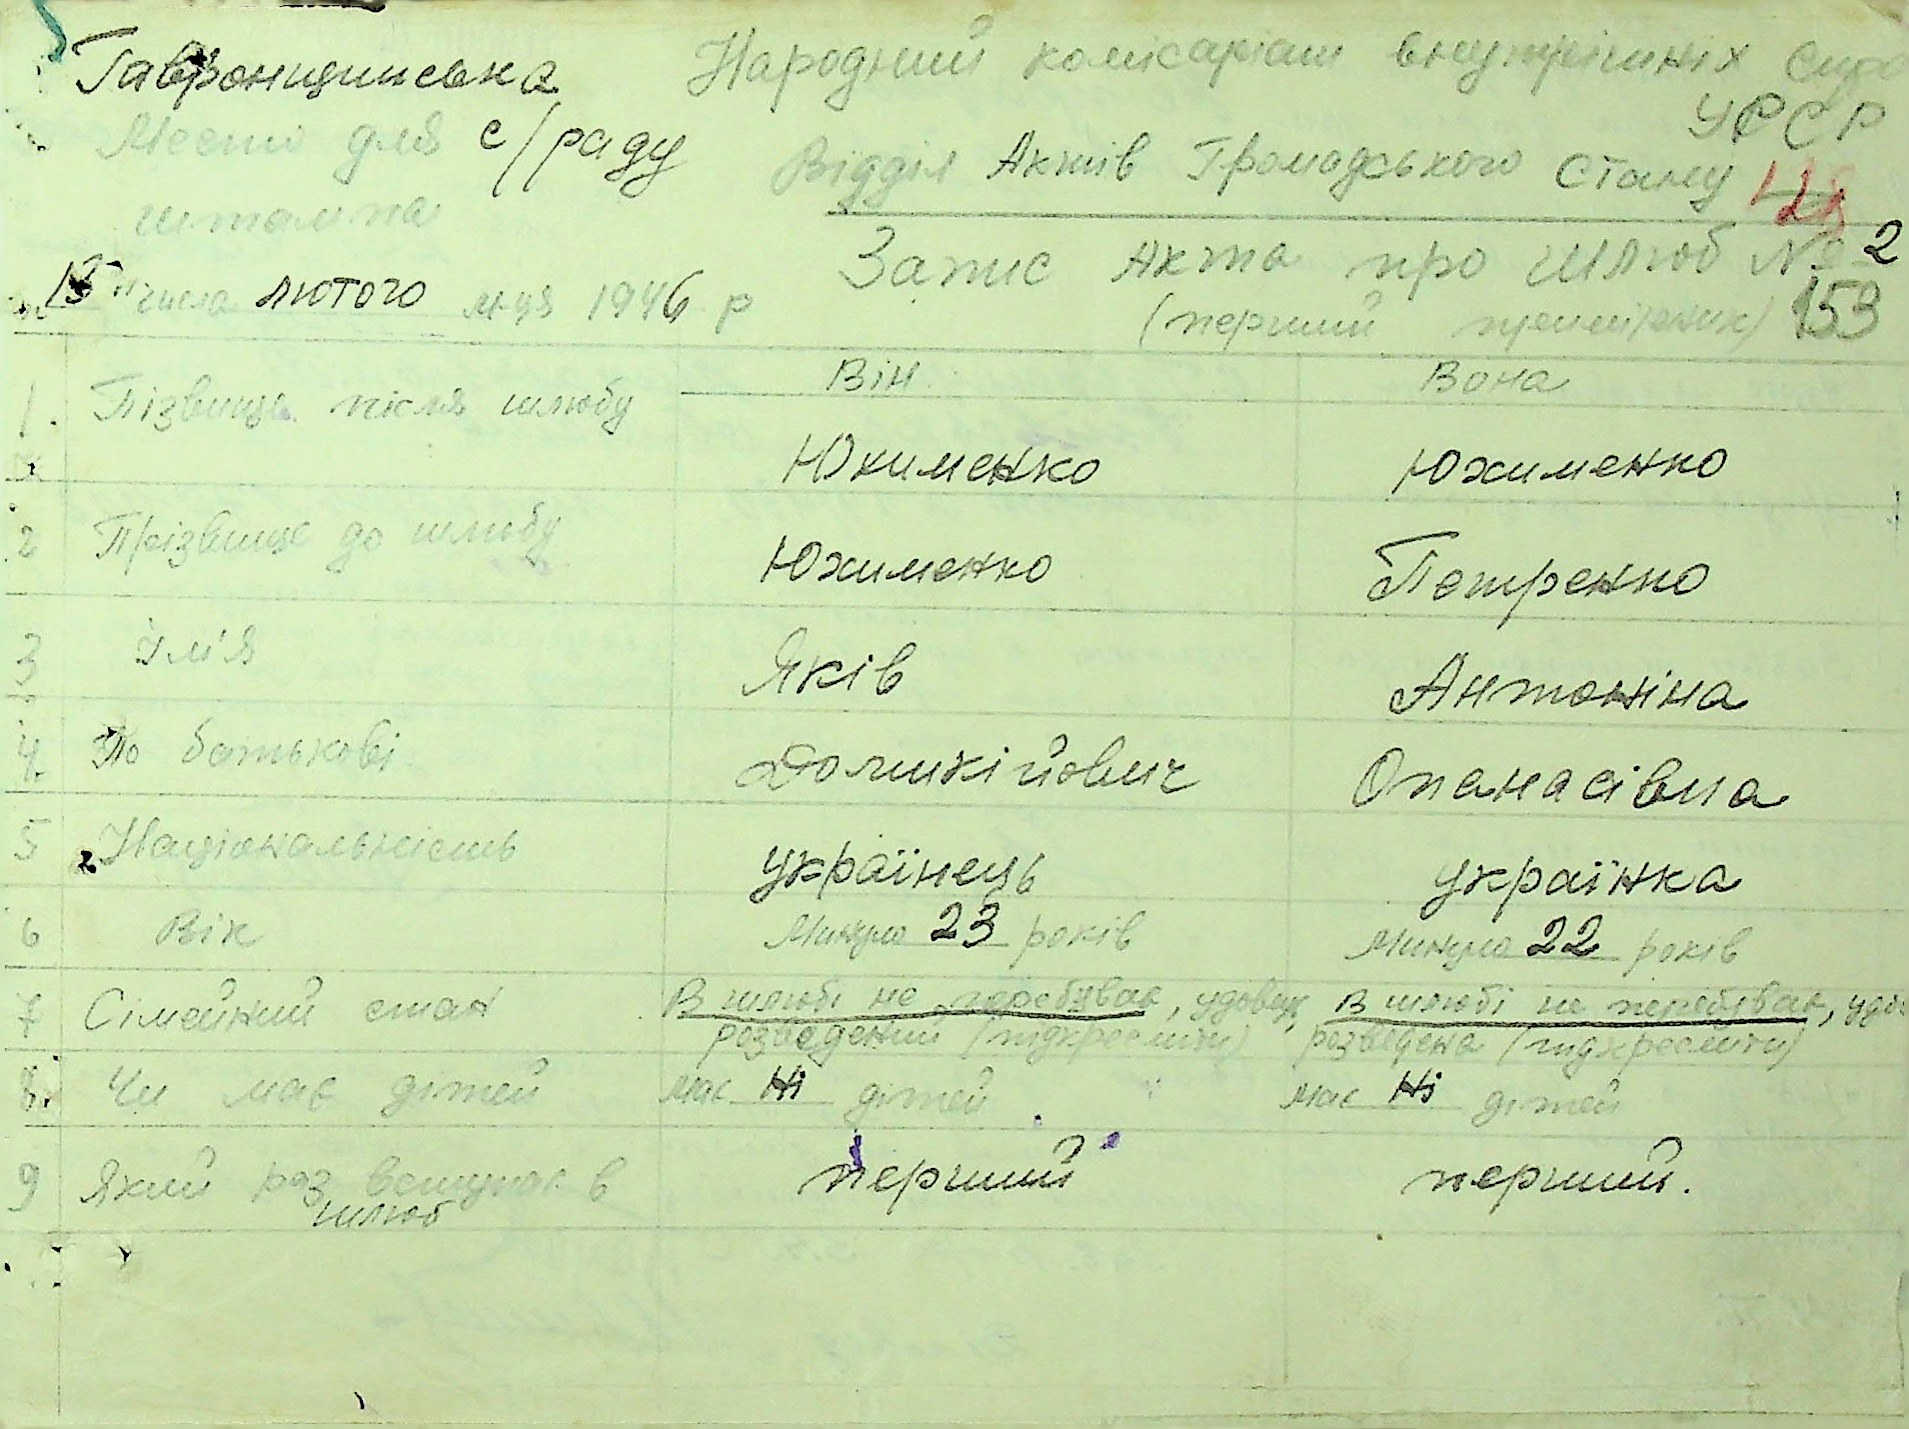 Гавронщинська
Народний комісаріат внутрішніх справ
УРСР
Место для с/раду
штампа
Відділ Актів Громадського Стану 128
Запис Акта про шлюб № 2
15 числа лютого м-ця 1946 р
(перший примірник) 153
Він Вона
1. Пізвище після шлюбу Юхименко Юхименко
2 Прізвище до шлюбу Юхименко Петренко
3 Ім'я Яків Антоніна
4. По батькові Опанасівна
5 Національність українець українка
6 Вік Минуло 23 років Минуло 22 років
7 Сімейний стан В шлюбі не перебував, удовець, В шлюбі не перебував, удов
розведений (підкреслити) розведена (підкреслити)
8. Чи має дітей має Ні дітей має Ні дітей
9 Який раз вступає в перший перший.
шлюб